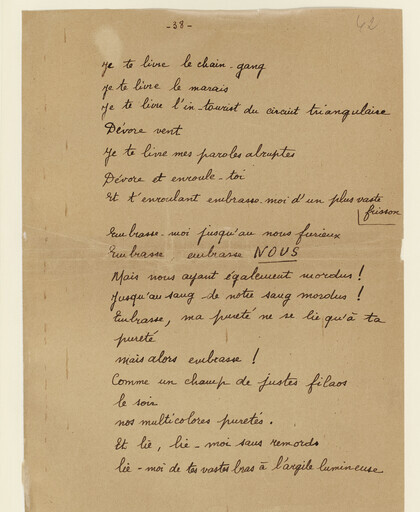 -38-
42
Je te livre le chain-gang
Je te livre le marais
Je te livre l'in-tourist du circuit triangulaire
Dévore vent
Je te livre mes paroles abruptes
Dévore et enroule-toi
Et t'enroulant embrasse-moi d'un plus vaste
frisson
Embrasse-moi jusqu'au nous furieux
Embrasse, embrasse NOUS
Mais nous ayant également mordus !
Jusqu'au sang de notre sang mordus !
Embrasse, ma pureté ne se lie qu'à ta
pureté
mais alors embrasse !
Comme un champ de justes filaos
le soir
nos multicolores puretés.
Et lie, lie-moi sans remords
lie-moi de tes vastes bras à l'argile lumineuse